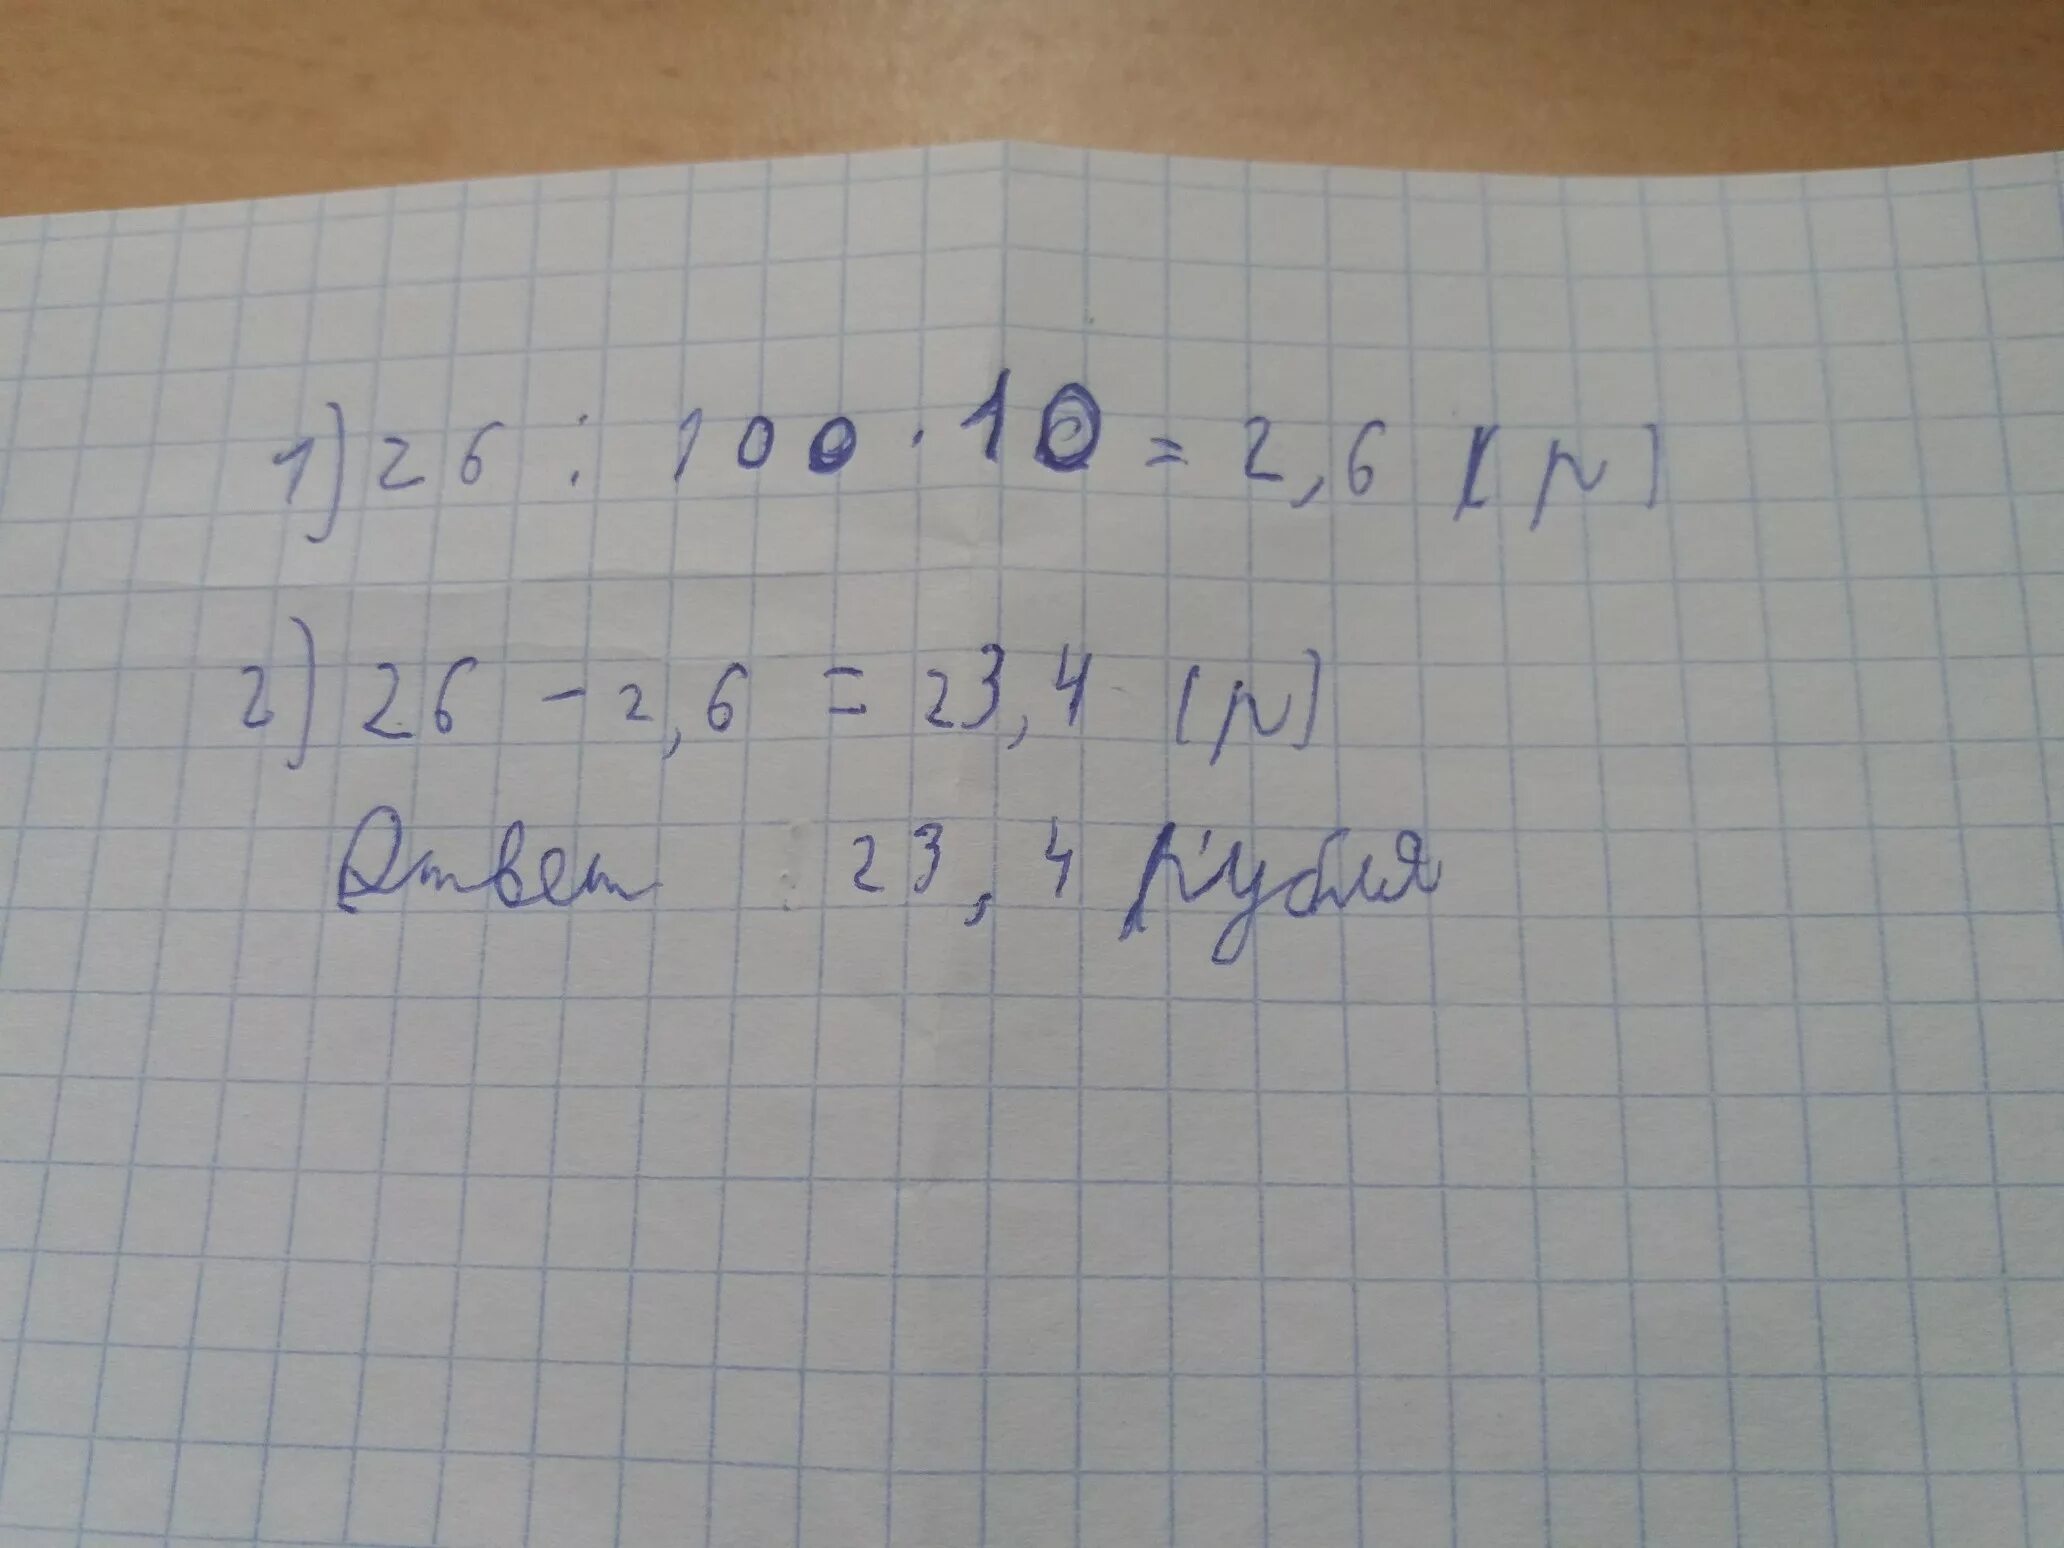 1) 26 : 100 · 10 = 2,6 (р)
2) 26 - 2,6 = 23,4 (р)
Ответ : 23,4 рубля